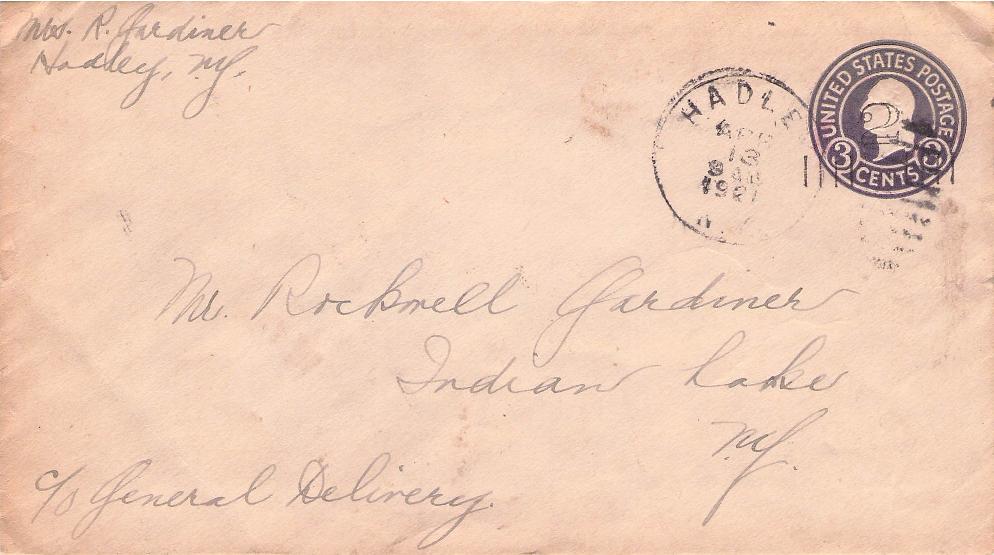 Mrs. R. Gardiner
Hadley, N.Y.
HADLE
APR
13
9 AM
1921
N.
UNITED STATES POSTAGE
3 CENTS 3
Mr. Rockwell Gardiner
Indian Lake
N.Y.
c/o General Delivery.